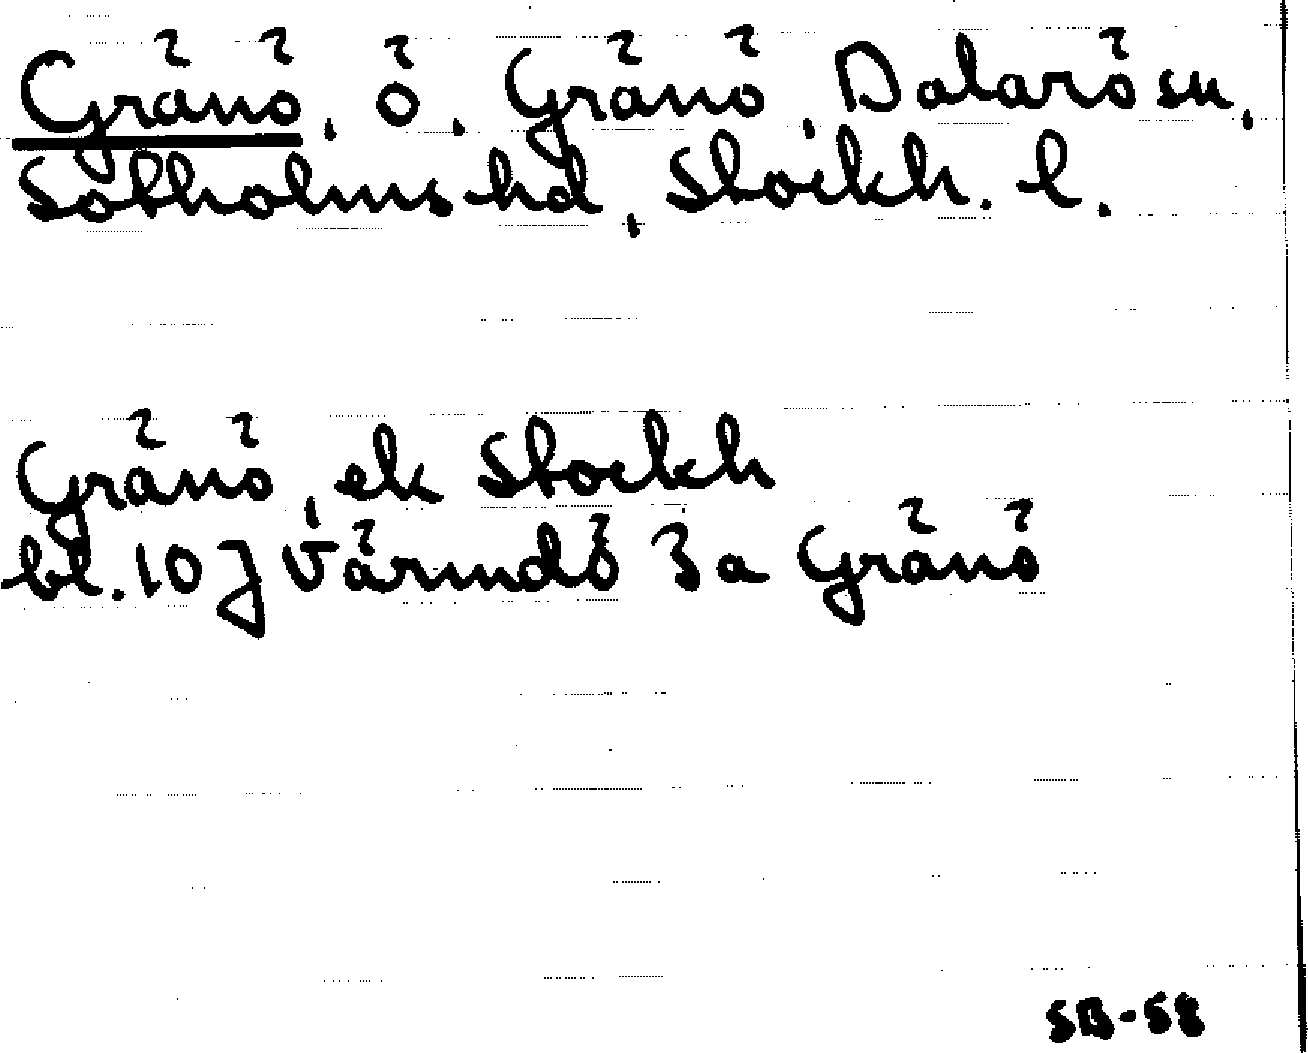 Gränö, ö, Gränö, Dalarö sn,
Sotholms hd, Stockh. l.
Gränö, ek Stockh
bl. 10 J Värmdö 3 a Gränö
SB-58